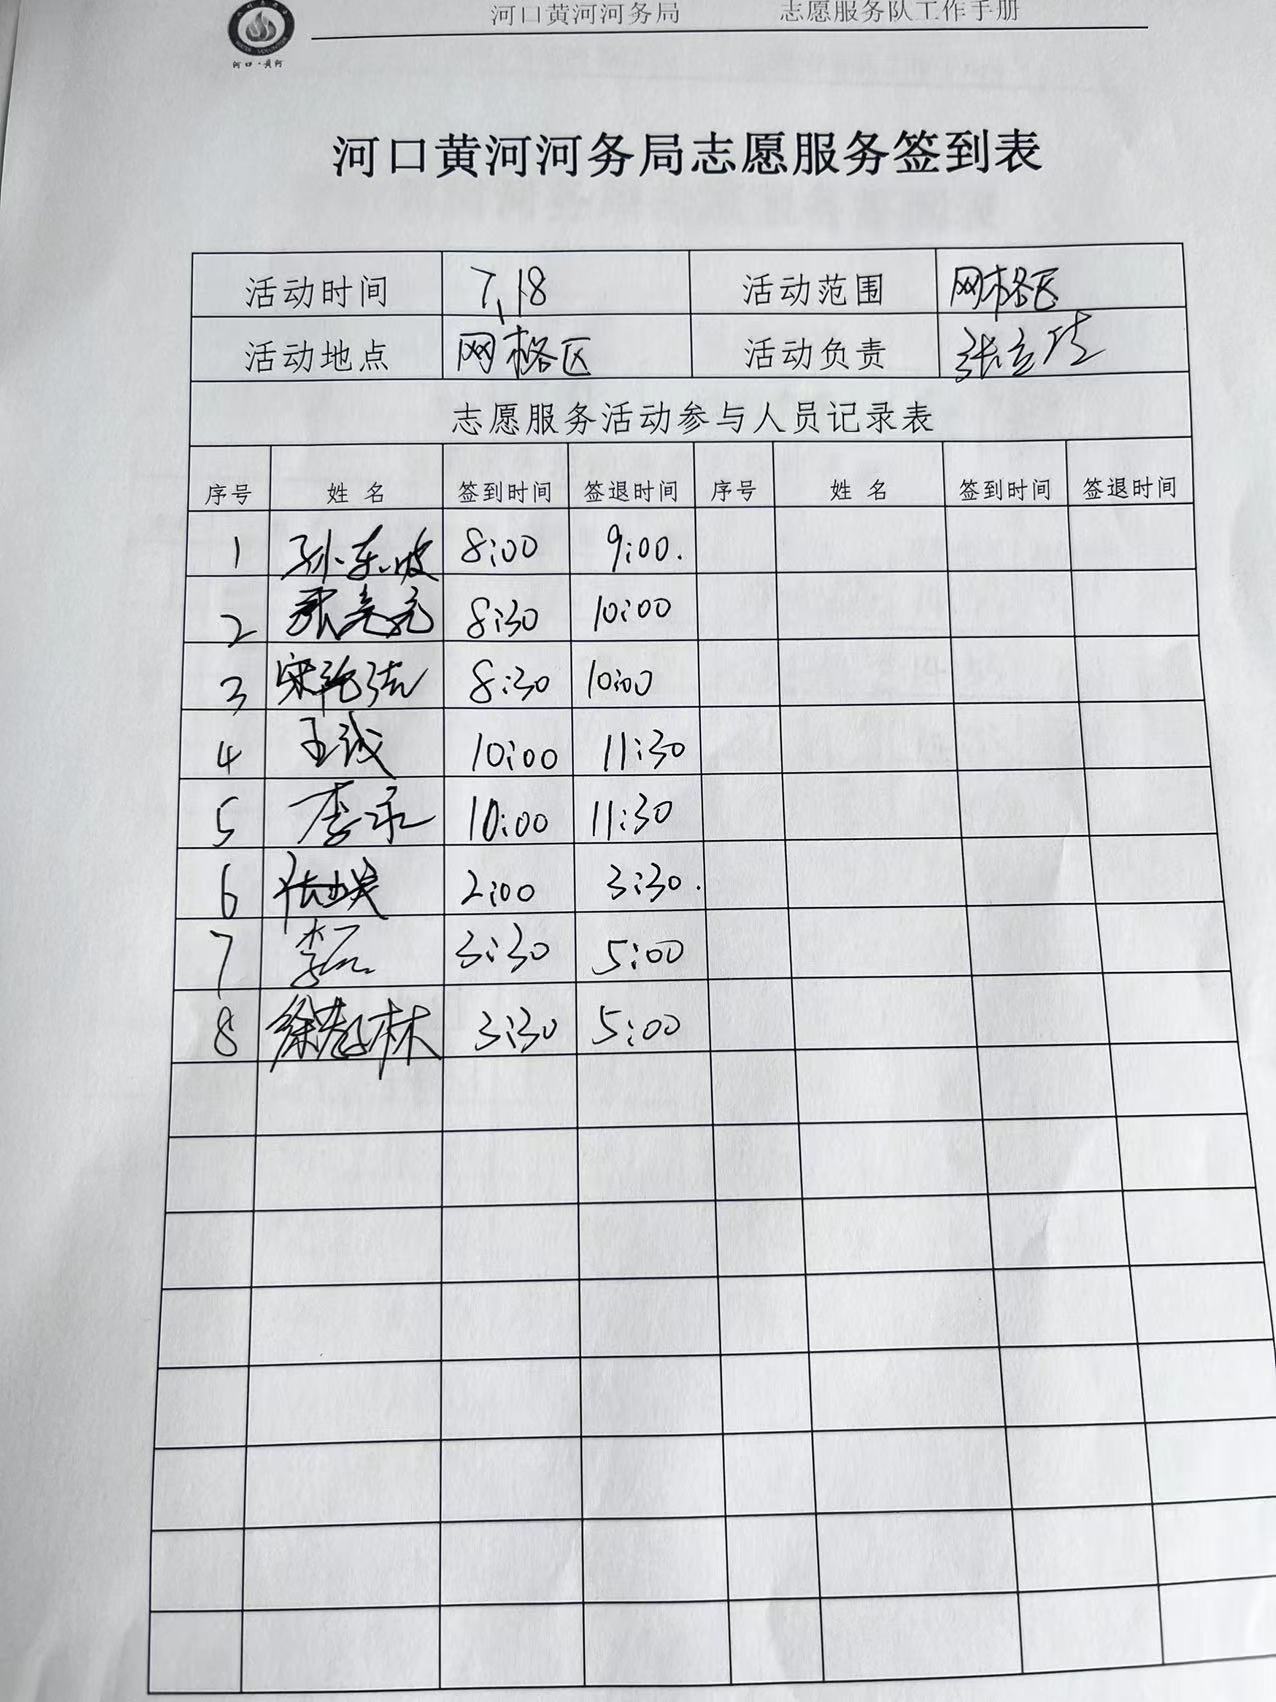 河口·黄河
河口黄河河务局 志愿服务队工作手册
河口黄河河务局志愿服务签到表
活动时间 7.18 活动范围 网格区
活动地点 网格区 活动负责 张立
志愿服务活动参与人员记录表
序号 姓名 签到时间 签退时间 序号 姓名 签到时间 签退时间
1 孙东波 8:00 9:00.
2 张亮亮 8:30 10:00
3 宋 8:30 10:00
4 王诚 10:00 11:30
5 李 10:00 11:30
6 2:00 3:30.
7 李 3:30 5:00
8 徐 林 3:30 5:00